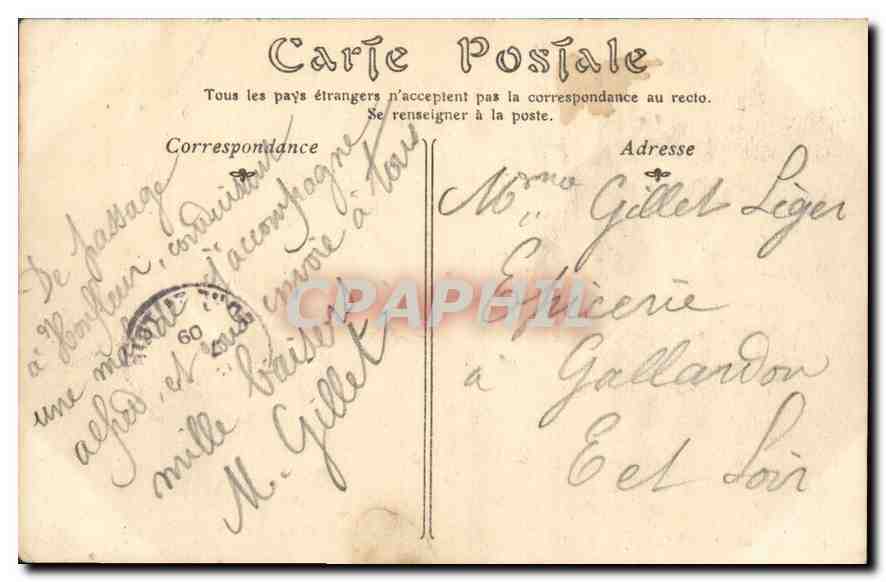 Carte Postale
Tous les pays étrangers n'acceptent pas la correspondance au recto.
Se renseigner à la poste.
Correspondance
Adresse
De passage
à Honfleur, conduisant
une malade j'accompagne
alfred, et vous envoie à tous
mille baisers
M. Gillet
Mme Gillet Léger
Epicerie
à Gallardon
E et Loir
09
CPAPHIL